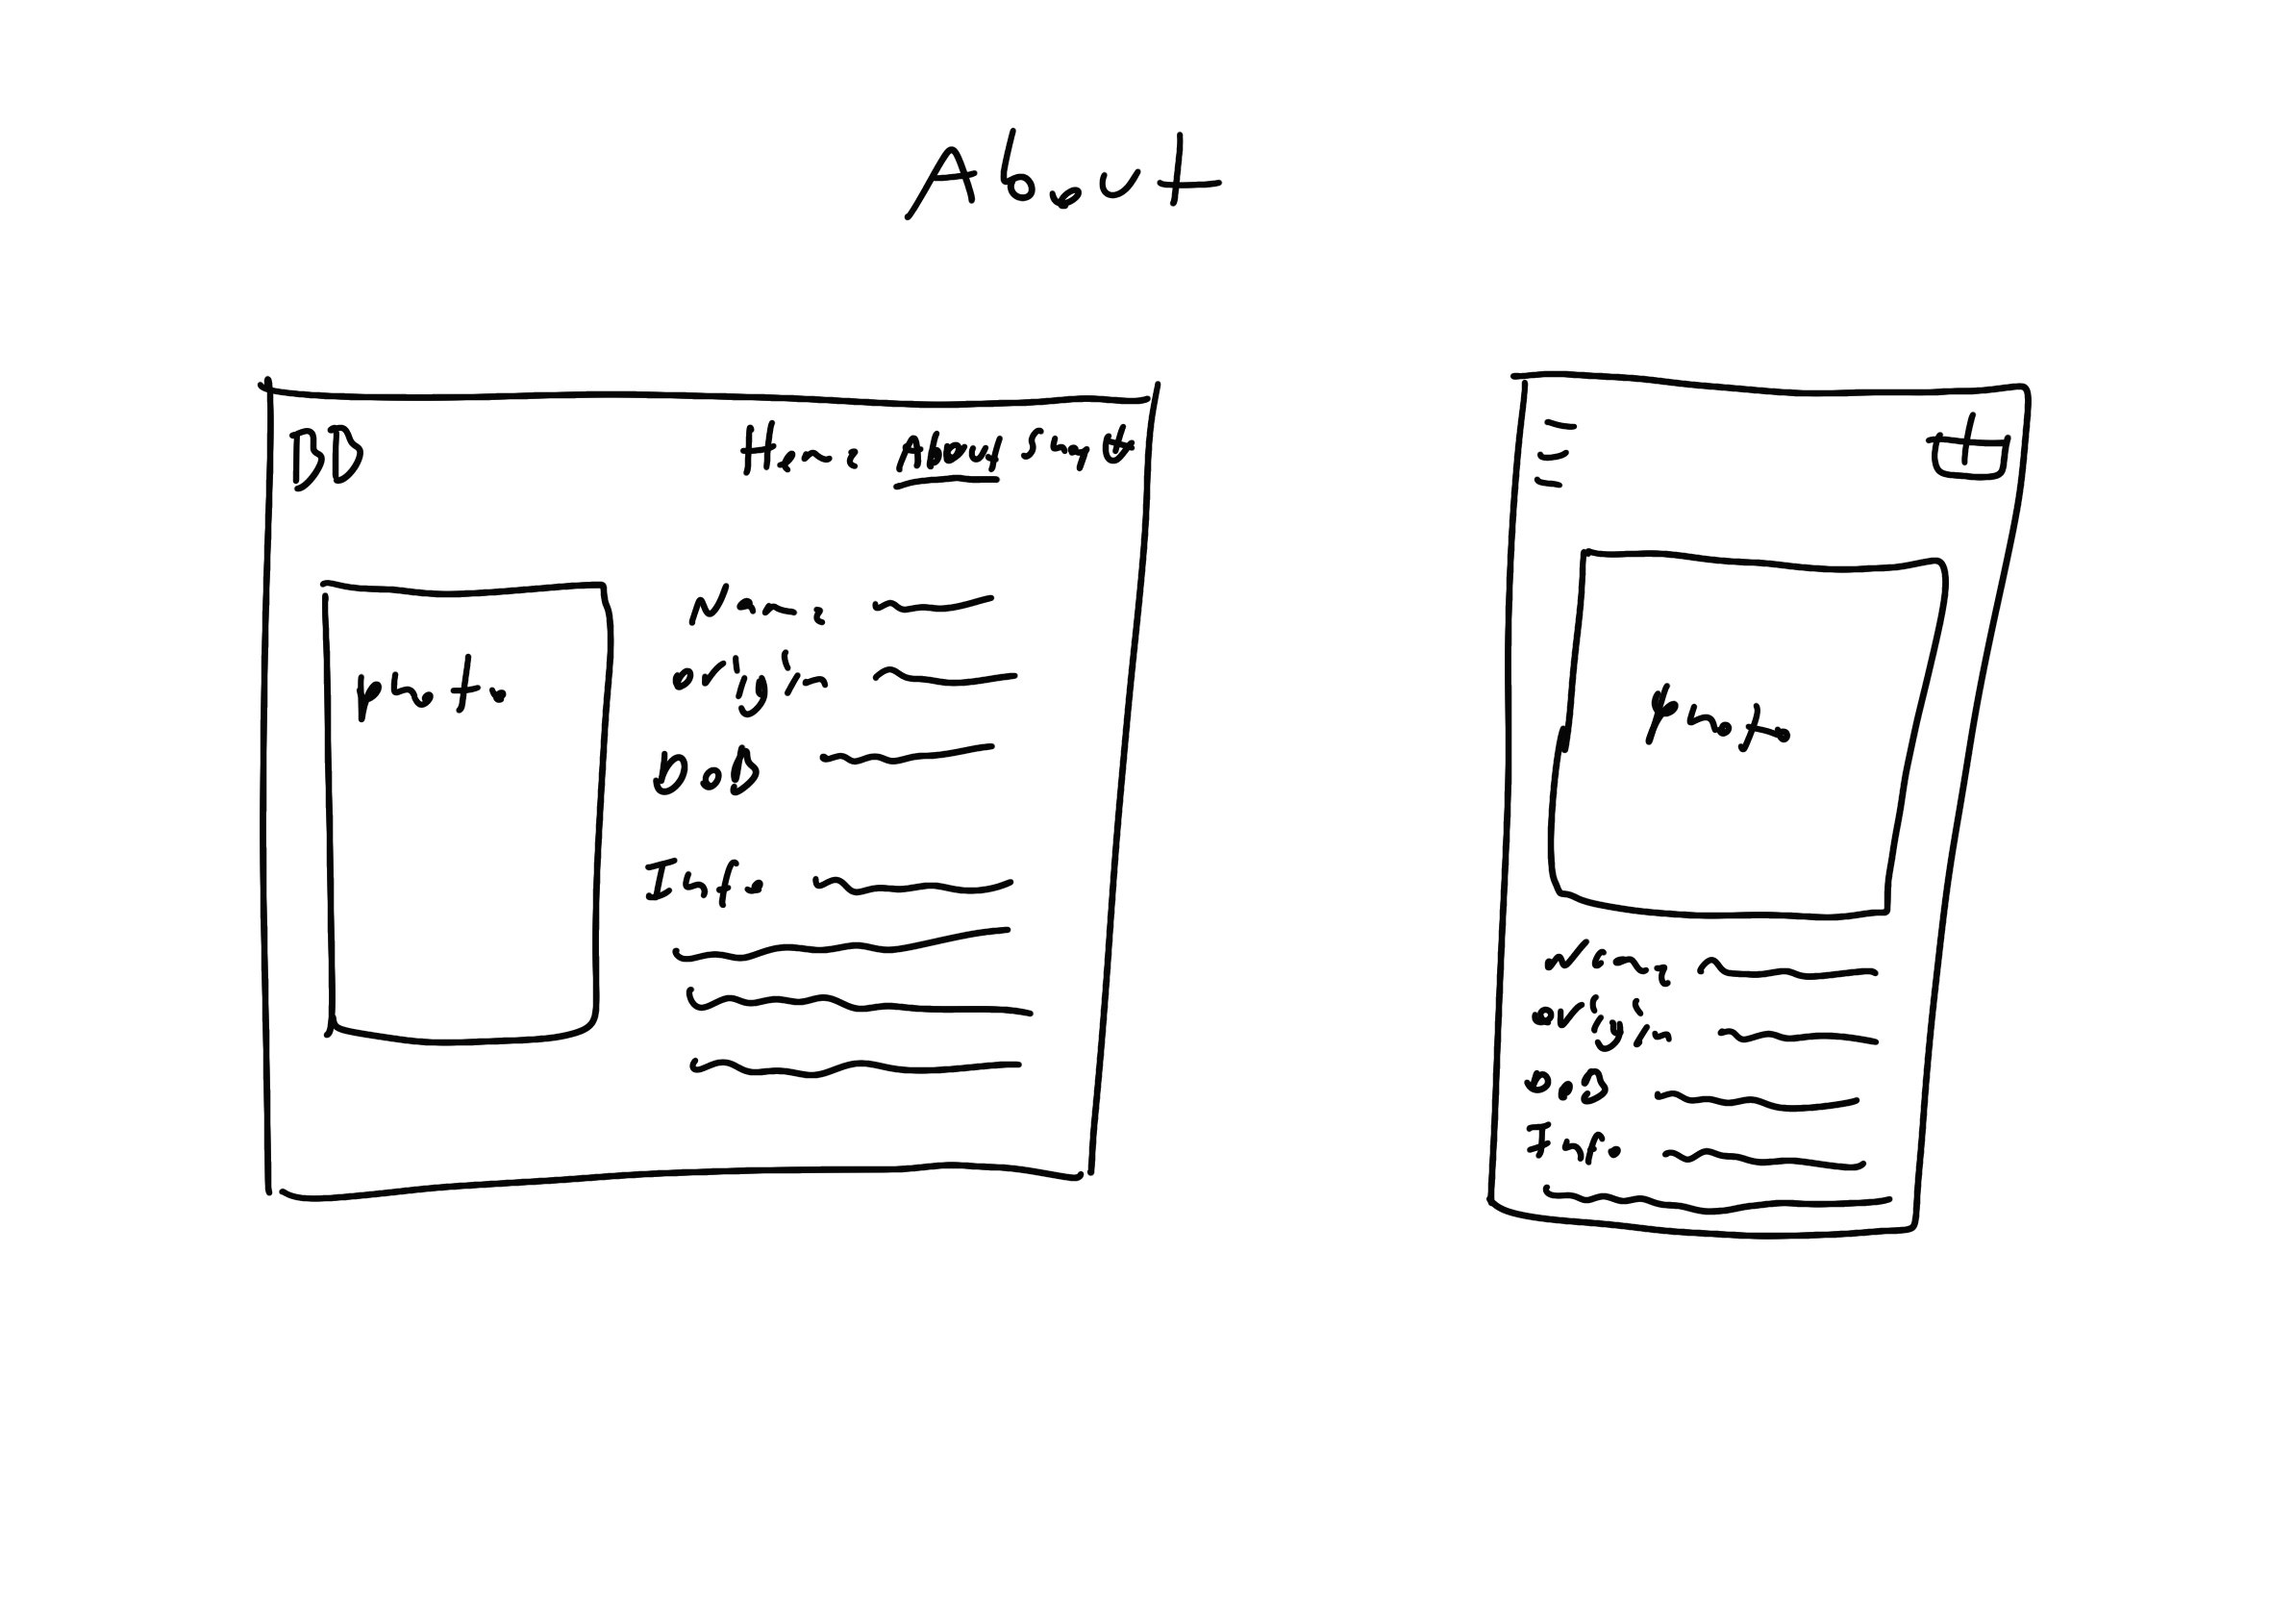 About
DD Home About Shop
photo
Name
origin
DoB
Info
photo
Name
origin
DoB
Info